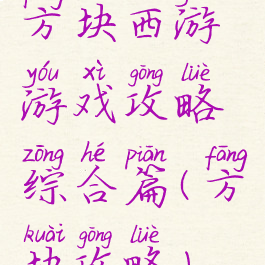 方块西游
yóu xì gōng lüè
游戏攻略
zōng hé piān fāng
综合篇(方
kuài gōng lüè
块攻略)